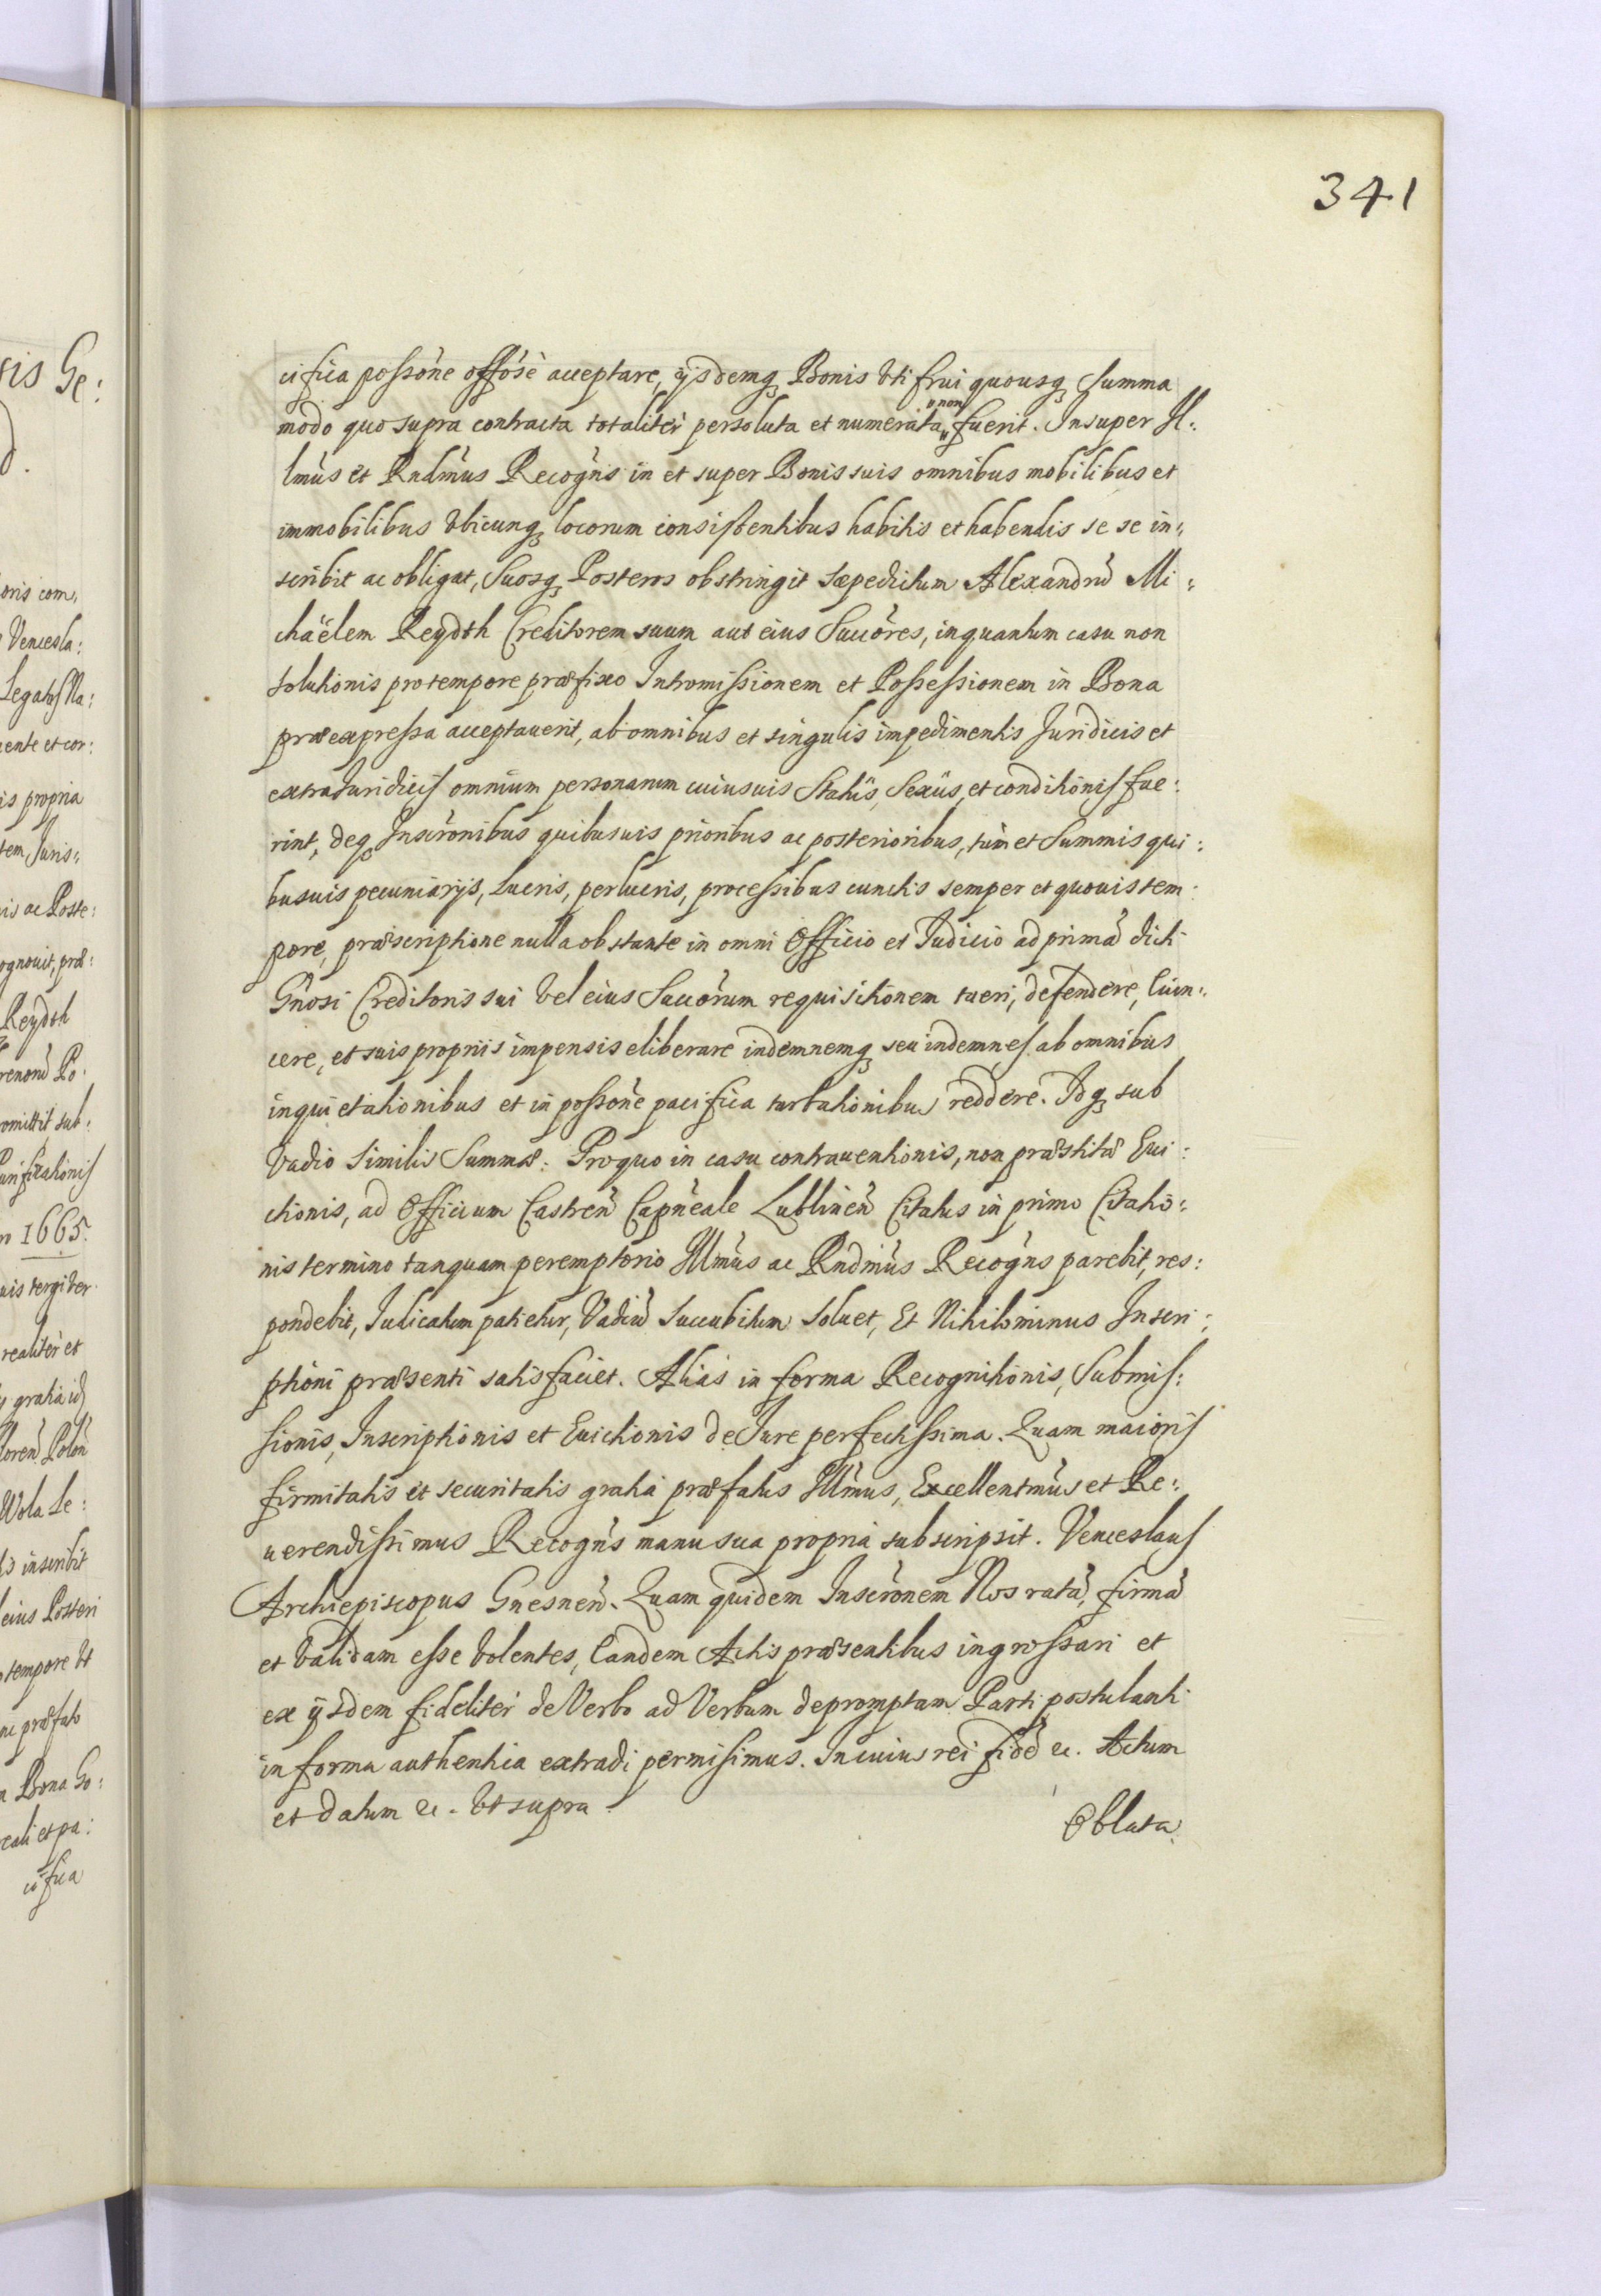 341
cifica possõne offõsè acceptare, ijsdemq́ Bonis vti frui quousq́ Summa
modo quo supra contracta totalitèr persoluta et numerata non fuerit. Insuper Il:
lmùs et Rndmùs Recogñs in et super Bonis suis omnibus mobilibus et
immobilibus vbicunq́ locorum consistentibus habitis et habendis se se in:
scribit ac obligat, Suosq́ Posteros obstringit sæpedictum Alexandrũ Mi:
chaëlem Reydth Creditorem suum aut eius Succõres, inquantum casu non
solutionis pro tempore præfixo Intromissionem et Possessionem in Bona
præexpressa acceptauerit, ab omnibus et singulis impedimentis Juridicis et
extraJuridicis omnium personarum cuiusuis Statûs, Sexûs, et conditionis fue:
rint, deq́ Inscrõnibus quibusuis prioribus ac posterioribus, tùm et Summis qui:
busuis pecuniarijs, Lucris, perlucris, processibus cunctis semper et quouis tem:
pore, præscriptione nulla obstante in omni Officio et Judicio ad primã dicti
Gñosi Creditoris sui vel eius Succõrum requisitionem tueri, defendere, Euin:
cere, et suis propriis impensis eliberare indemnemq́ seu indemnes ab omnibus
inquietationibus et in possõne pacifica turbationibus reddere. Idq́ sub
Vadio similis Summæ: Pro quo in casu contrauentionis, non præstitæ Eui:
ctionis, ad Officium Castreñ Capñeale Lublineñ Citatus in primo Citatio:
nis termino tanquam peremptorio Illmùs ac Rndmùs Recogñs parebit, res:
pondebit, Judicatum patietur, Vadiũ succubitum soluet, Et Nihilominus Inscri:
ptioni præsenti satisfaciet. Aliàs in forma Recognitionis, Submis:
sionis, Inscriptionis et Euictionis de Jure perfectissima. Quam maioris
firmitatis et securitatis gratia præfatus Illmùs, Excellentmùs et Re:
uerendissimus Recogñs manu sua propria subscripsit. Venceslaus
Archiepiscopus Gnesneñ. Quam quidem Inscrõnem Nos ratã, firmã
et Validam esse volentes, Eandem Actis præsentibus ingrossari et
ex ijsdem fidelitèr de Verbo ad Verbum depromptam Parti postulanti
in forma authentica extradi permisimus. In cuius rei fidẽ &c. Actum
et datum &c. vt supra.
Oblata